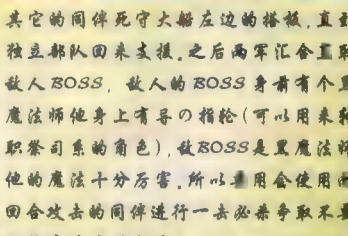 其它的同伴死守大船左边的搭板，直到
独立部队回来支援。之后两军汇合
敌人BOSS，敌人的BOSS身前有个
魔法师他身上有导の指轮（可以用来转
职祭司系的角色），敌BOSS是黑魔法师
他的魔法十分厉害。所以用会使用
回合攻击的同伴进行一击必杀争取不